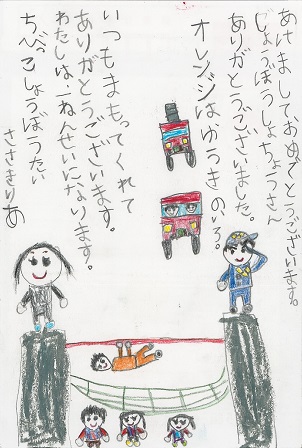 あけましておめでとうございます。
しょうぼうしょちょうさん
ありがとうございました。
オレンジはゆうきのいろ。
いつもまもってくれて
ありがとうございます。
わたしは、1ねんせいになります。
ちんべこしょうぼうたい
ささきまりあ